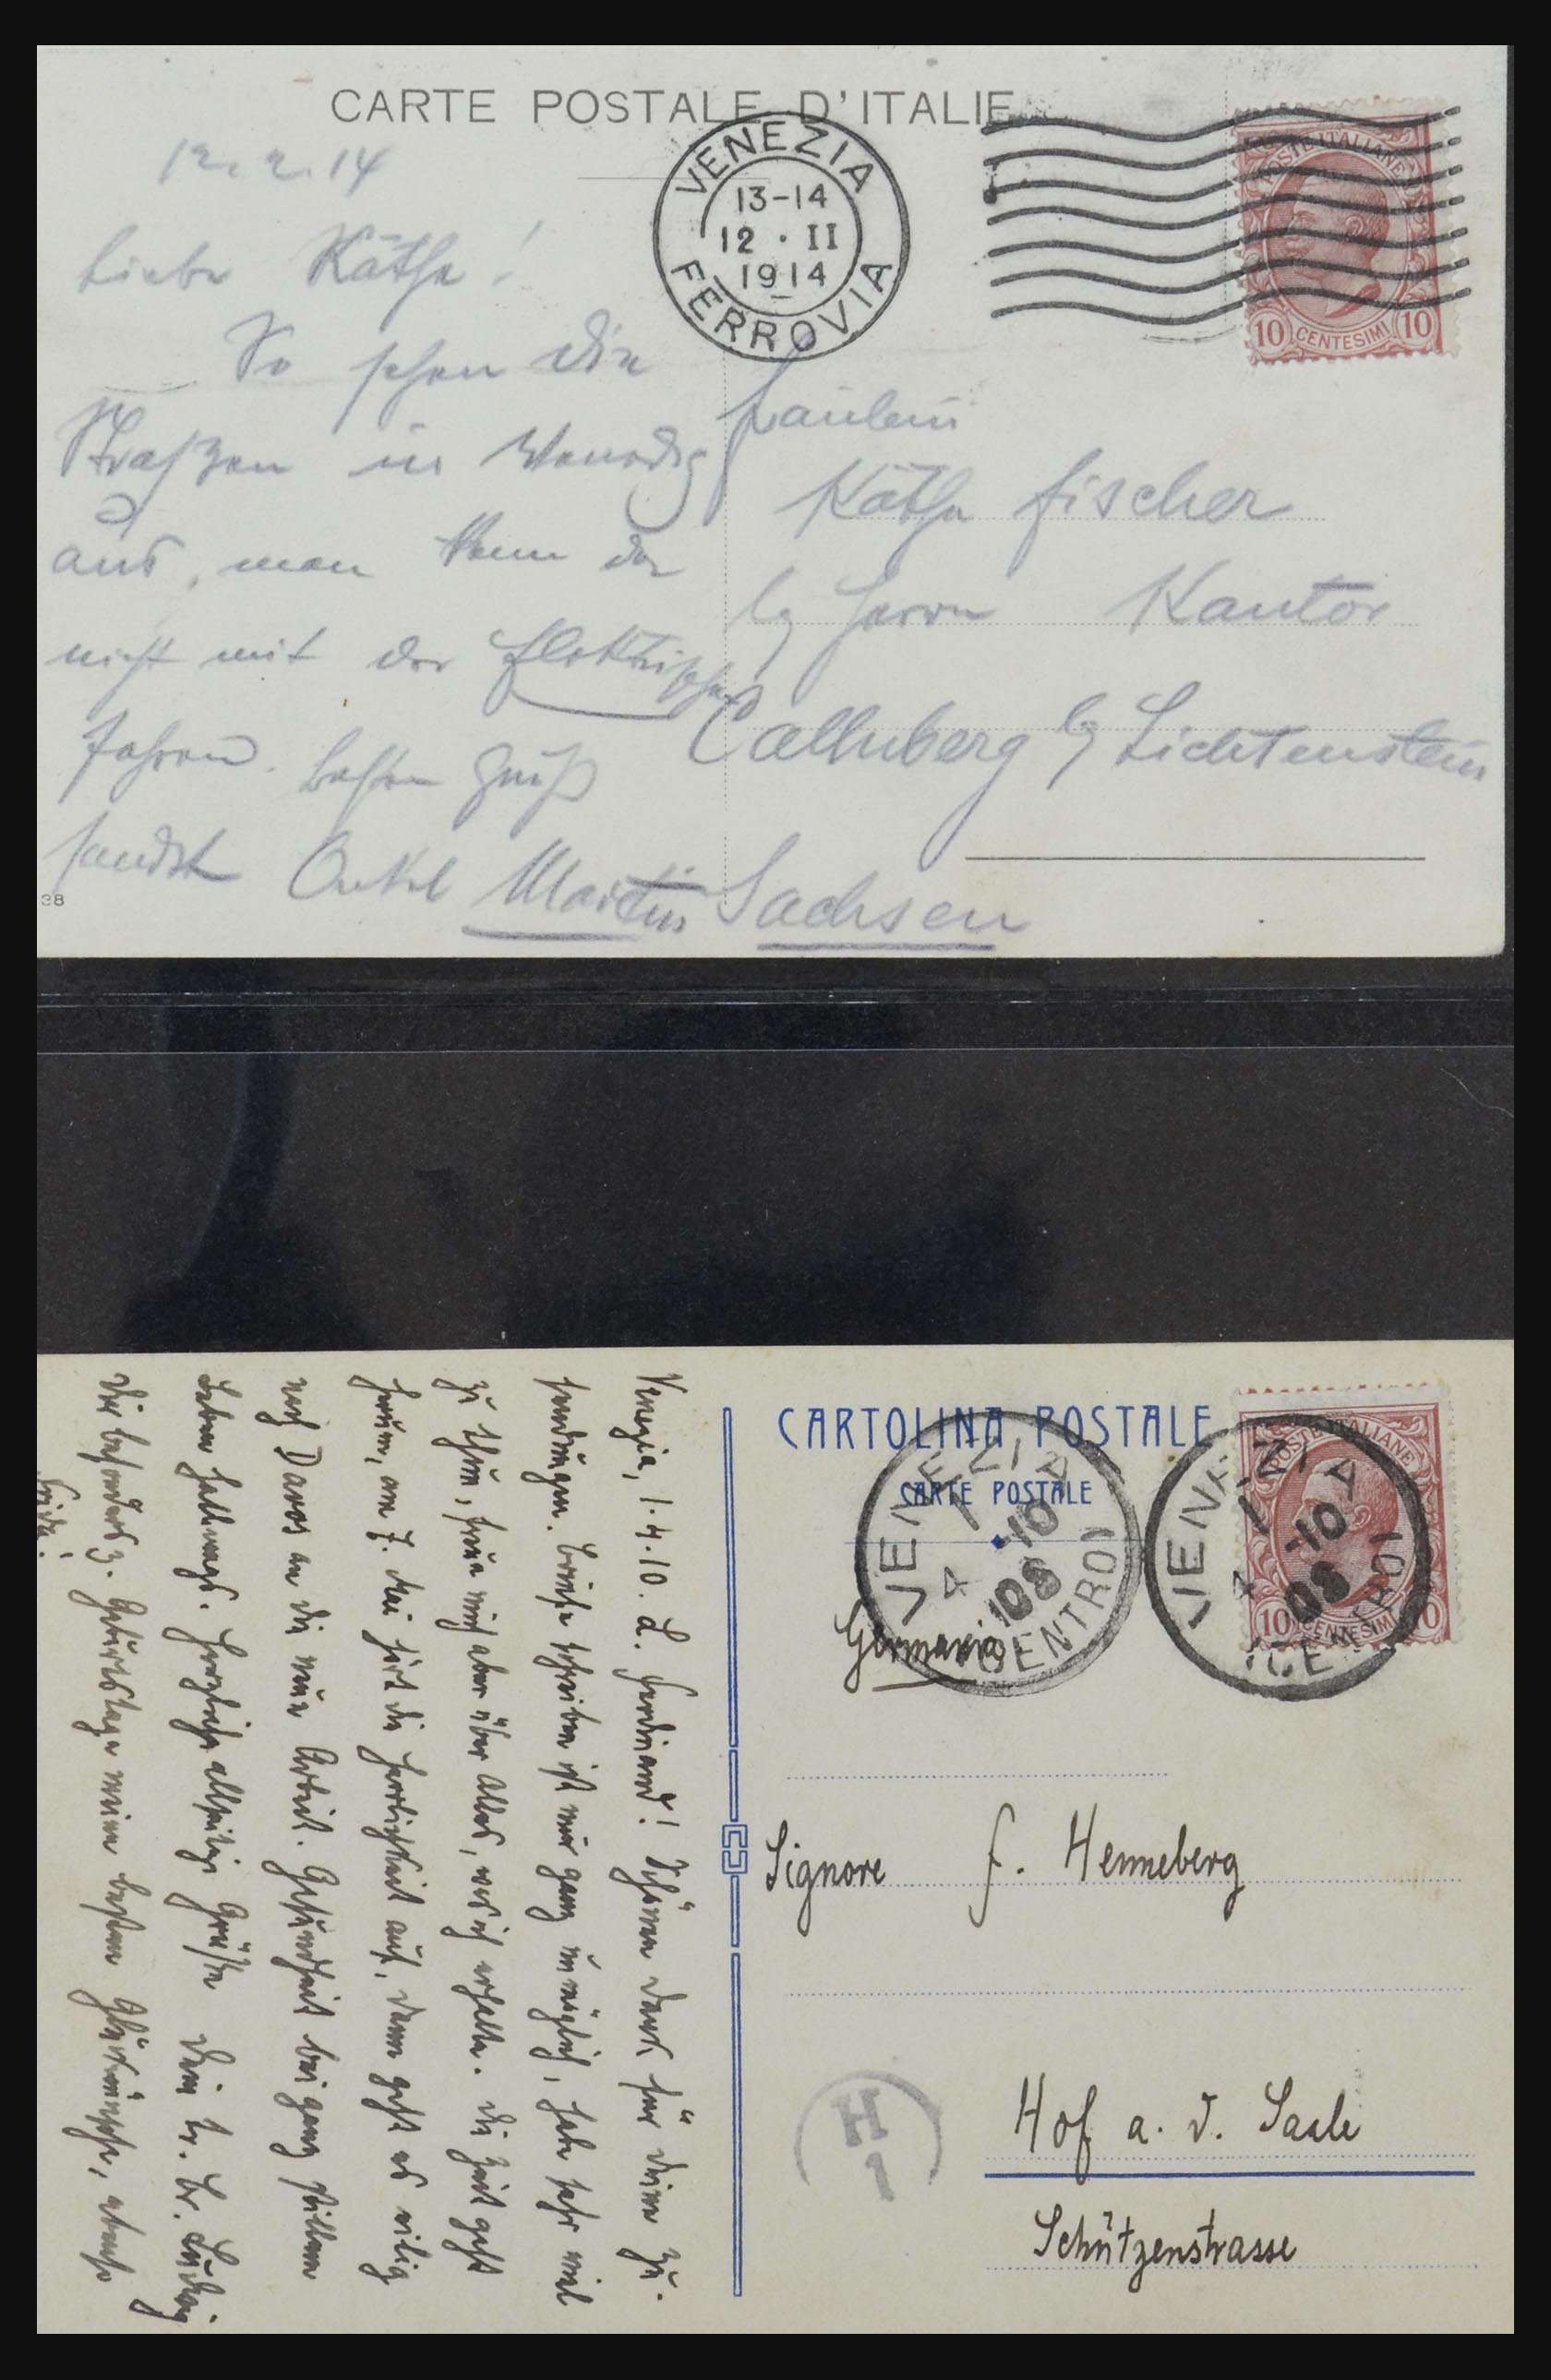 CARTE POSTALE D'ITALIE
VENEZIA
13-14
12 · II
1914
FERROVIA
POSTE ITALIANE
10 CENTESIMI 10
12.2.14
Liebe Käthe!
So sehen die
Straßen in Venedig
aus, man kann da
nicht mit der Elektrischen
fahren. Besten Gruß
sendet Onkel Martin
38
Fräulein
Käthe Fischer
b/ Herrn Kantor
Callnberg b/ Lichtenstein
Sachsen
CARTOLINA POSTALE
CARTE POSTALE
VENEZIA
1 -10
4 10S
CENTRO
VENEZIA
1 -10
4 10S
CENTRO
POSTE ITALIANE
10 CENTESIMI 10
Germania
Signore F. Henneberg
Hof a. d. Saale
Schützenstrasse
H
1
Venezia, 1.4.10. L. Ferdinand! Schönen Dank für deine Zu-
sendungen. Briefe schreiben ist mir ganz unmöglich, habe sehr viel
zu thun, freue mich aber über Alles, was ich erhalte. Die Zeit geht
herum, am 7. Mai hört die Herrlichkeit auf, dann geht es eilig
nach Davos an die neue Arbeit. Gesundheit bei ganz stillem
Leben halbwegs. Herzliche allseitige Grüße Dein tr. Br. Ludwig
Dir besonders z. Geburtstage meine besten Glückwünsche, ebenso